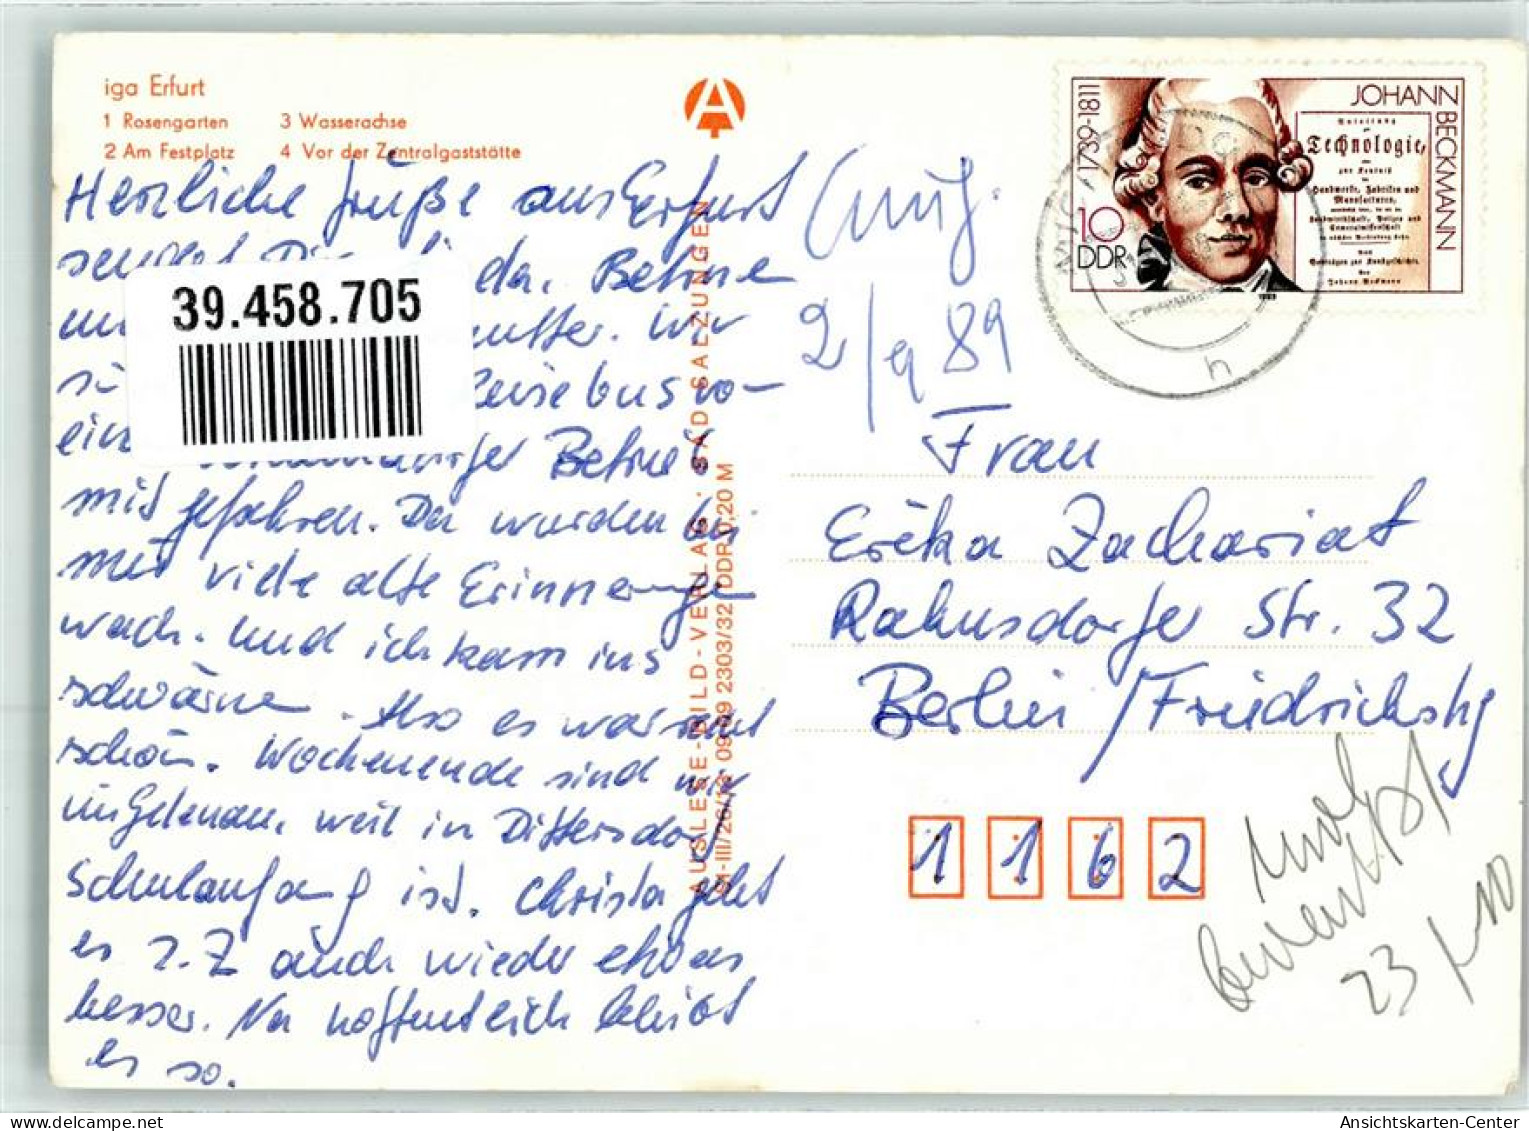 iga Erfurt
1 Rosengarten 3 Wasserachse
2 Am Festplatz 4 Vor der Zentralgaststätte
Herzliche Grüße aus Erfurt
da. Behne
mutter. Wir
Reisebus vo-
Behne
mit gefahren. Da wurden bei
mir viele alte Erinnerungen
wach. Und ich kam ins
schwärmen. Also es war
schön. Wochenende sind wir
eingeladen, weil in Dittersdorf
Schulanfang ist. Christa geht
es z.Z auch wieder etwas
besser. Na hoffentlich bleibt
es so.
39.458.705
AUSLESE-BILD-VERLAG · BAD SALZUNGEN
09 09 2303/32 DDR 0,20 M
2/9 89
1739-1811
JOHANN BECKMANN
10
DDR
Anleitung
zur
Technologie,
zur Kentniß
Handwerke, Fabriken und
Manufacturen,
Landwirthschaft, Polizey und
Cameralwissenschaft
Johann Beckmann
1989
h
Frau
Erika Zachariat
Rahnsdorfer Str. 32
Berlin / Friedrichshg
1 1 6 2
23
Ansichtskarten-Center